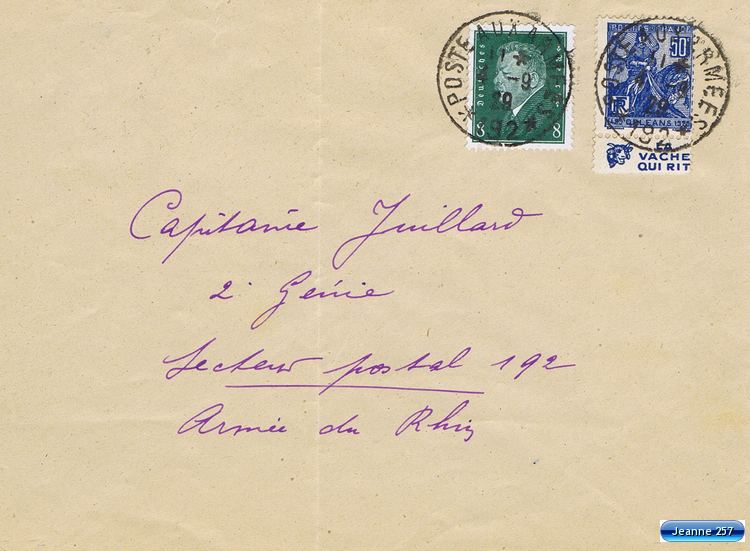 POSTE AUX ARMEES
17 *
-9
29
* 192 *
Deutsches
8 8
POSTES FRANCE
50
RF
ORLEANS
POSTE AUX ARMEES
17 *
29
* 192 *
LA
VACHE
QUI RIT
Capitanie Juillard
2e Génie
Secteur postal 192
Armée du Rhin
Jeanne 257